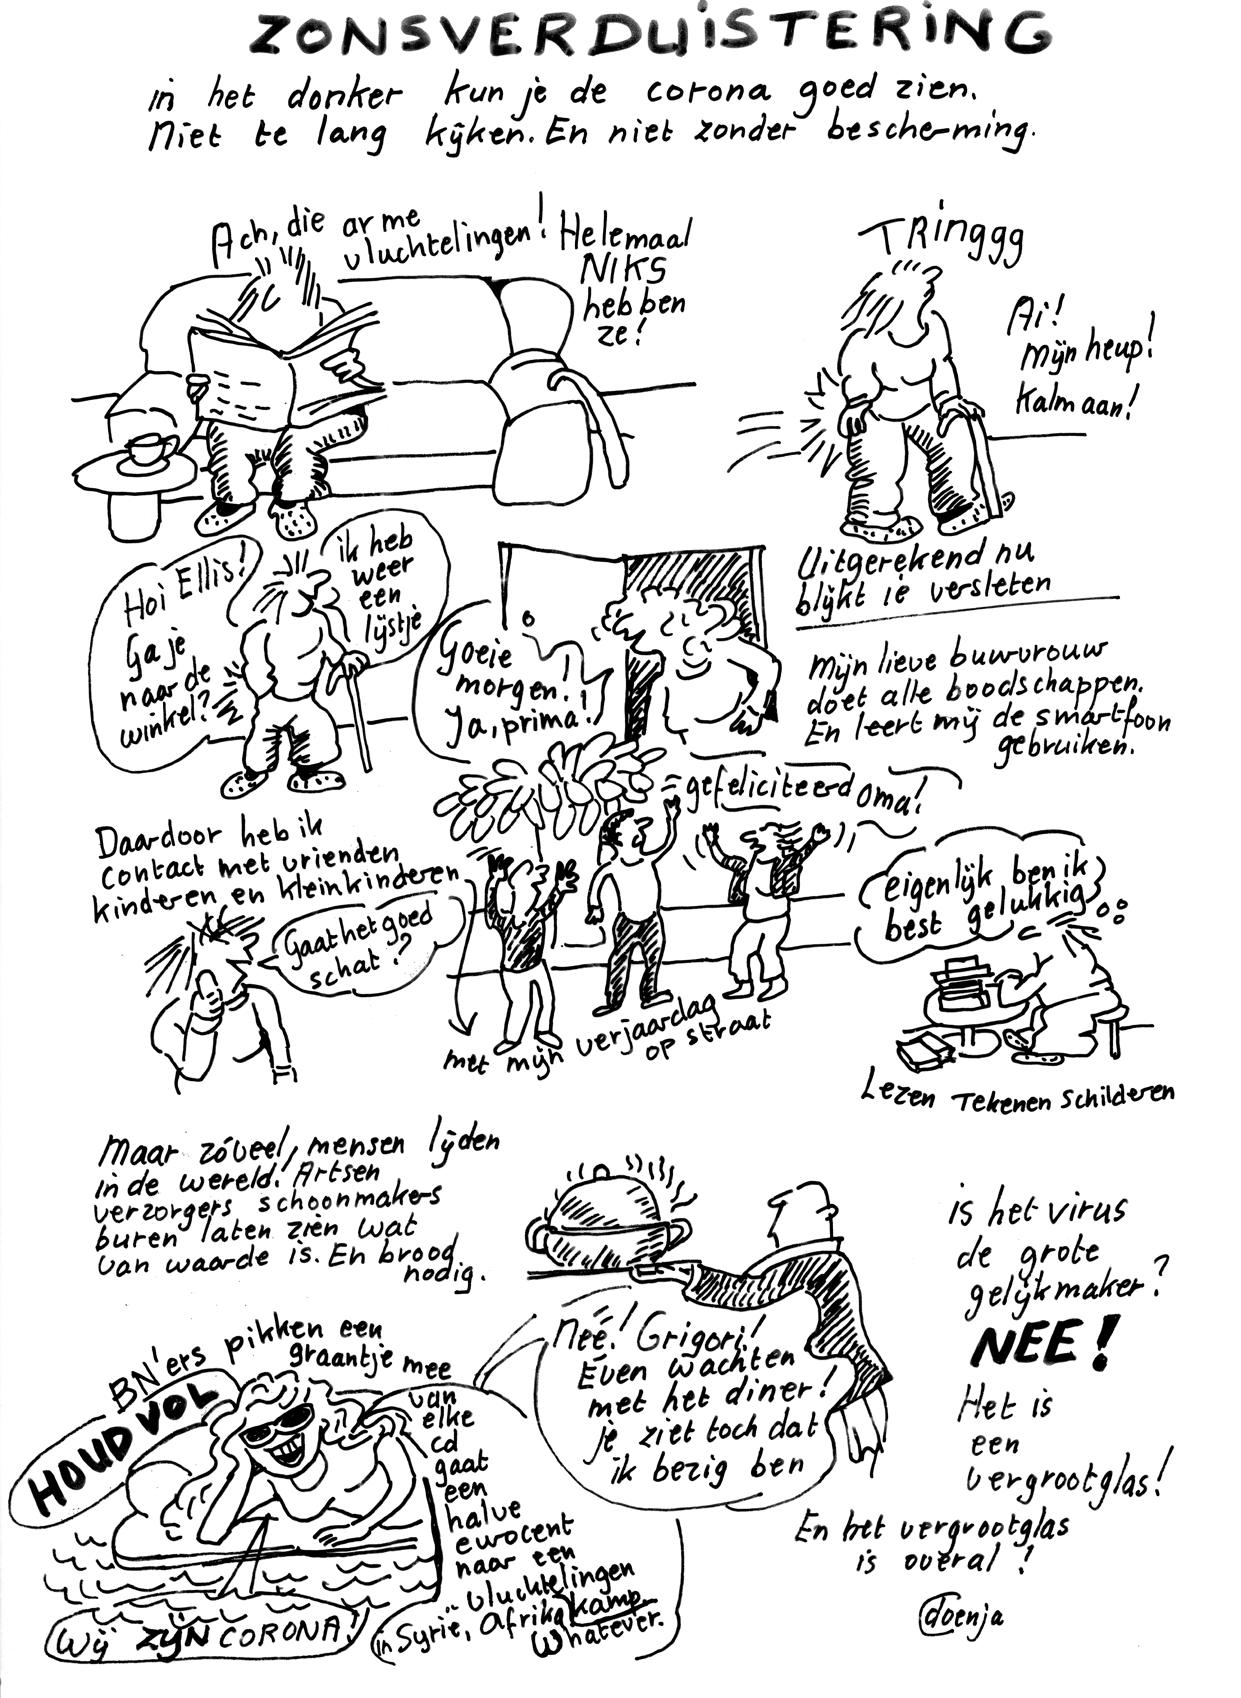 ZONSVERDUISTERING
in het donker kun je de corona goed zien.
Niet te lang kijken. En niet zonder bescherming.
Ach, die arme
vluchtelingen!
Helemaal
NIKS
hebben
ze!
TRinggg
Ai!
Mijn heup!
Kalm aan!
Uitgerekend nu
blijkt ie versleten
Hoi Ellis!
Ga je
naar de
winkel?
ik heb
weer
een
lijstje
Goeie
morgen!
Ja, prima!
Mijn lieve buurvrouw
doet alle boodschappen.
En leert mij de smartfoon
gebruiken.
Daardoor heb ik
contact met vrienden
kinderen en kleinkinderen
Gaat het goed
schat?
gefeliciteerd oma!
met mijn verjaardag
op straat
eigenlijk ben ik
best gelukkig
Lezen Tekenen Schilderen
Maar zóveel mensen lijden
in de wereld. Artsen
verzorgers schoonmakers
buren laten zien wat
van waarde is. En brood
nodig.
BN'ers pikken een
graantje mee
HOUD VOL
van
elke
cd
gaat
een
halve
eurocent
naar een
vluchtelingen
kamp
in Syrië, Afrika
Whatever.
Wij ZIJN CORONA!
Nee! Grigori!
Even wachten
met het diner!
je ziet toch dat
ik bezig ben
is het virus
de grote
gelijkmaker?
NEE!
Het is
een
vergrootglas!
En het vergrootglas
is overal!
doenja